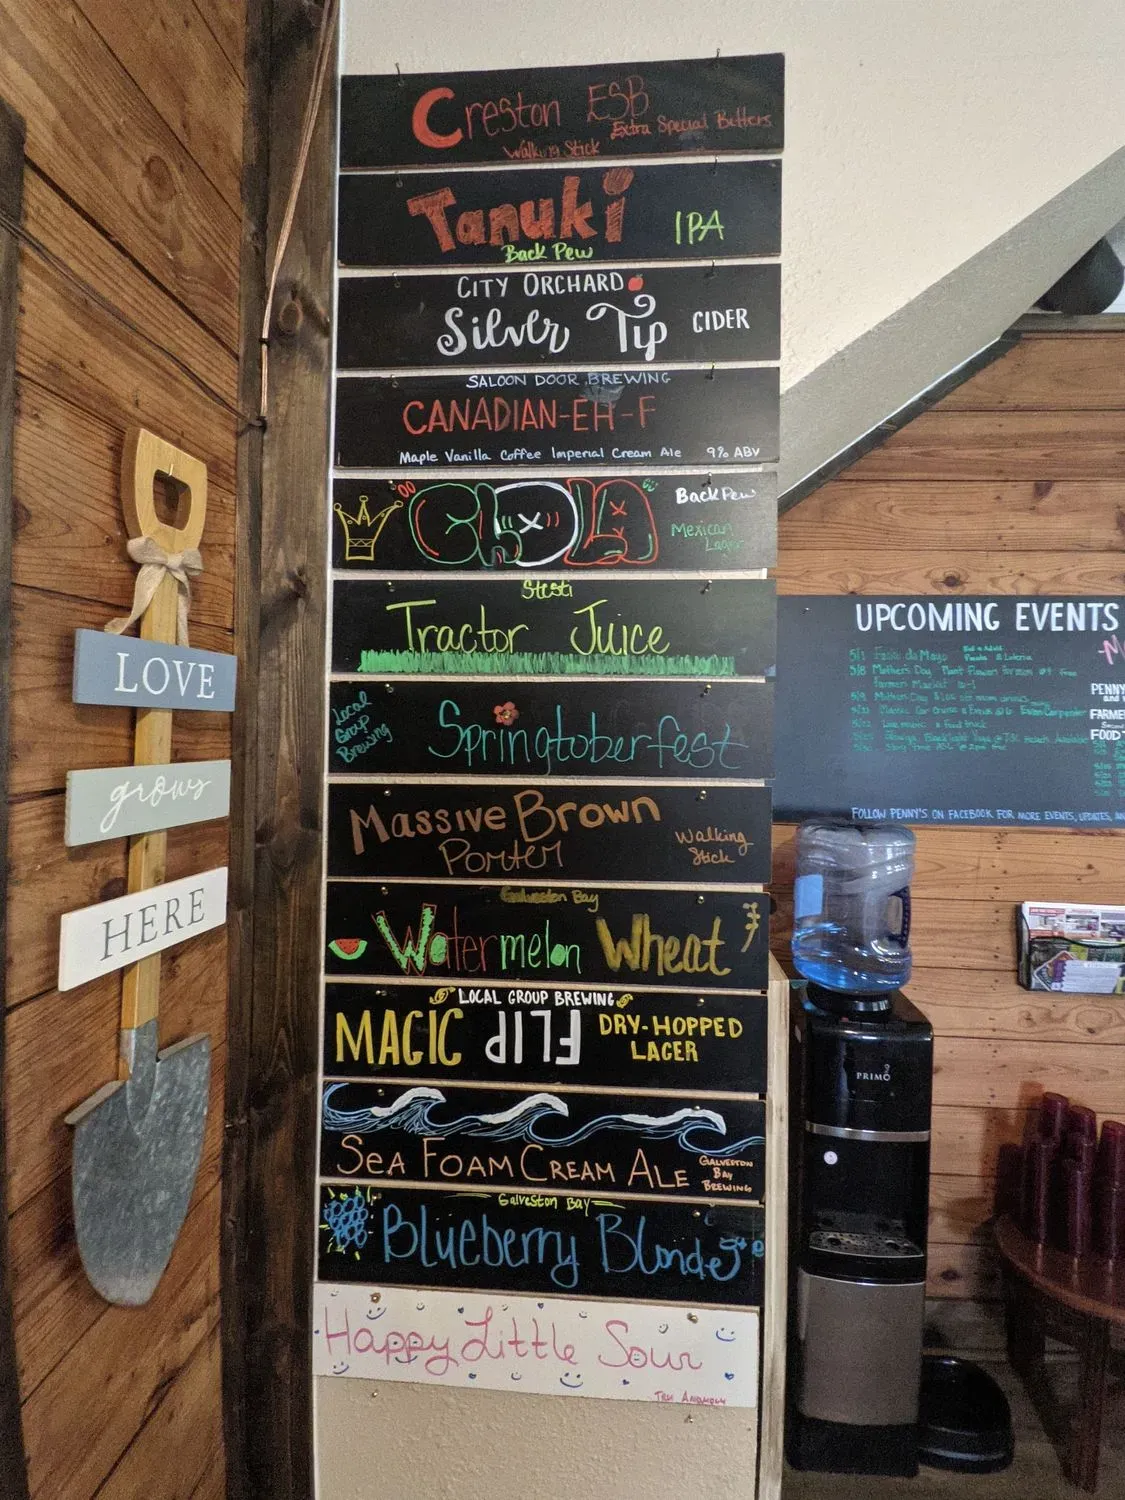 Creston ESB
Extra Special Bitters
Walking Stick
Tanuki
IPA
Back Pew
CITY ORCHARD
Silver Tip CIDER
SALOON DOOR BREWING
CANADIAN-EH-F
Maple Vanilla Coffee Imperial Cream Ale 9% ABV
Back Pew
Mexican
Lager
Tractor Juice
Local
Group
Brewing
Springtoberfest
Massive Brown
Porter
Walking
Stick
Galveston Bay
Watermelon Wheat
LOCAL GROUP BREWING
MAGIC FLIP
DRY-HOPPED
LAGER
SEA FOAM CREAM ALE
GALVESTON
BAY
BREWING
Galveston Bay
Blueberry Blonde
Happy Little Sour
LOVE
grows
HERE
UPCOMING EVENTS
Mother's Day
Farmers Market
PENNY
FARME
FOOD T
FOLLOW PENNY'S ON FACEBOOK FOR MORE EVENTS, UPDATES,
PRIMO